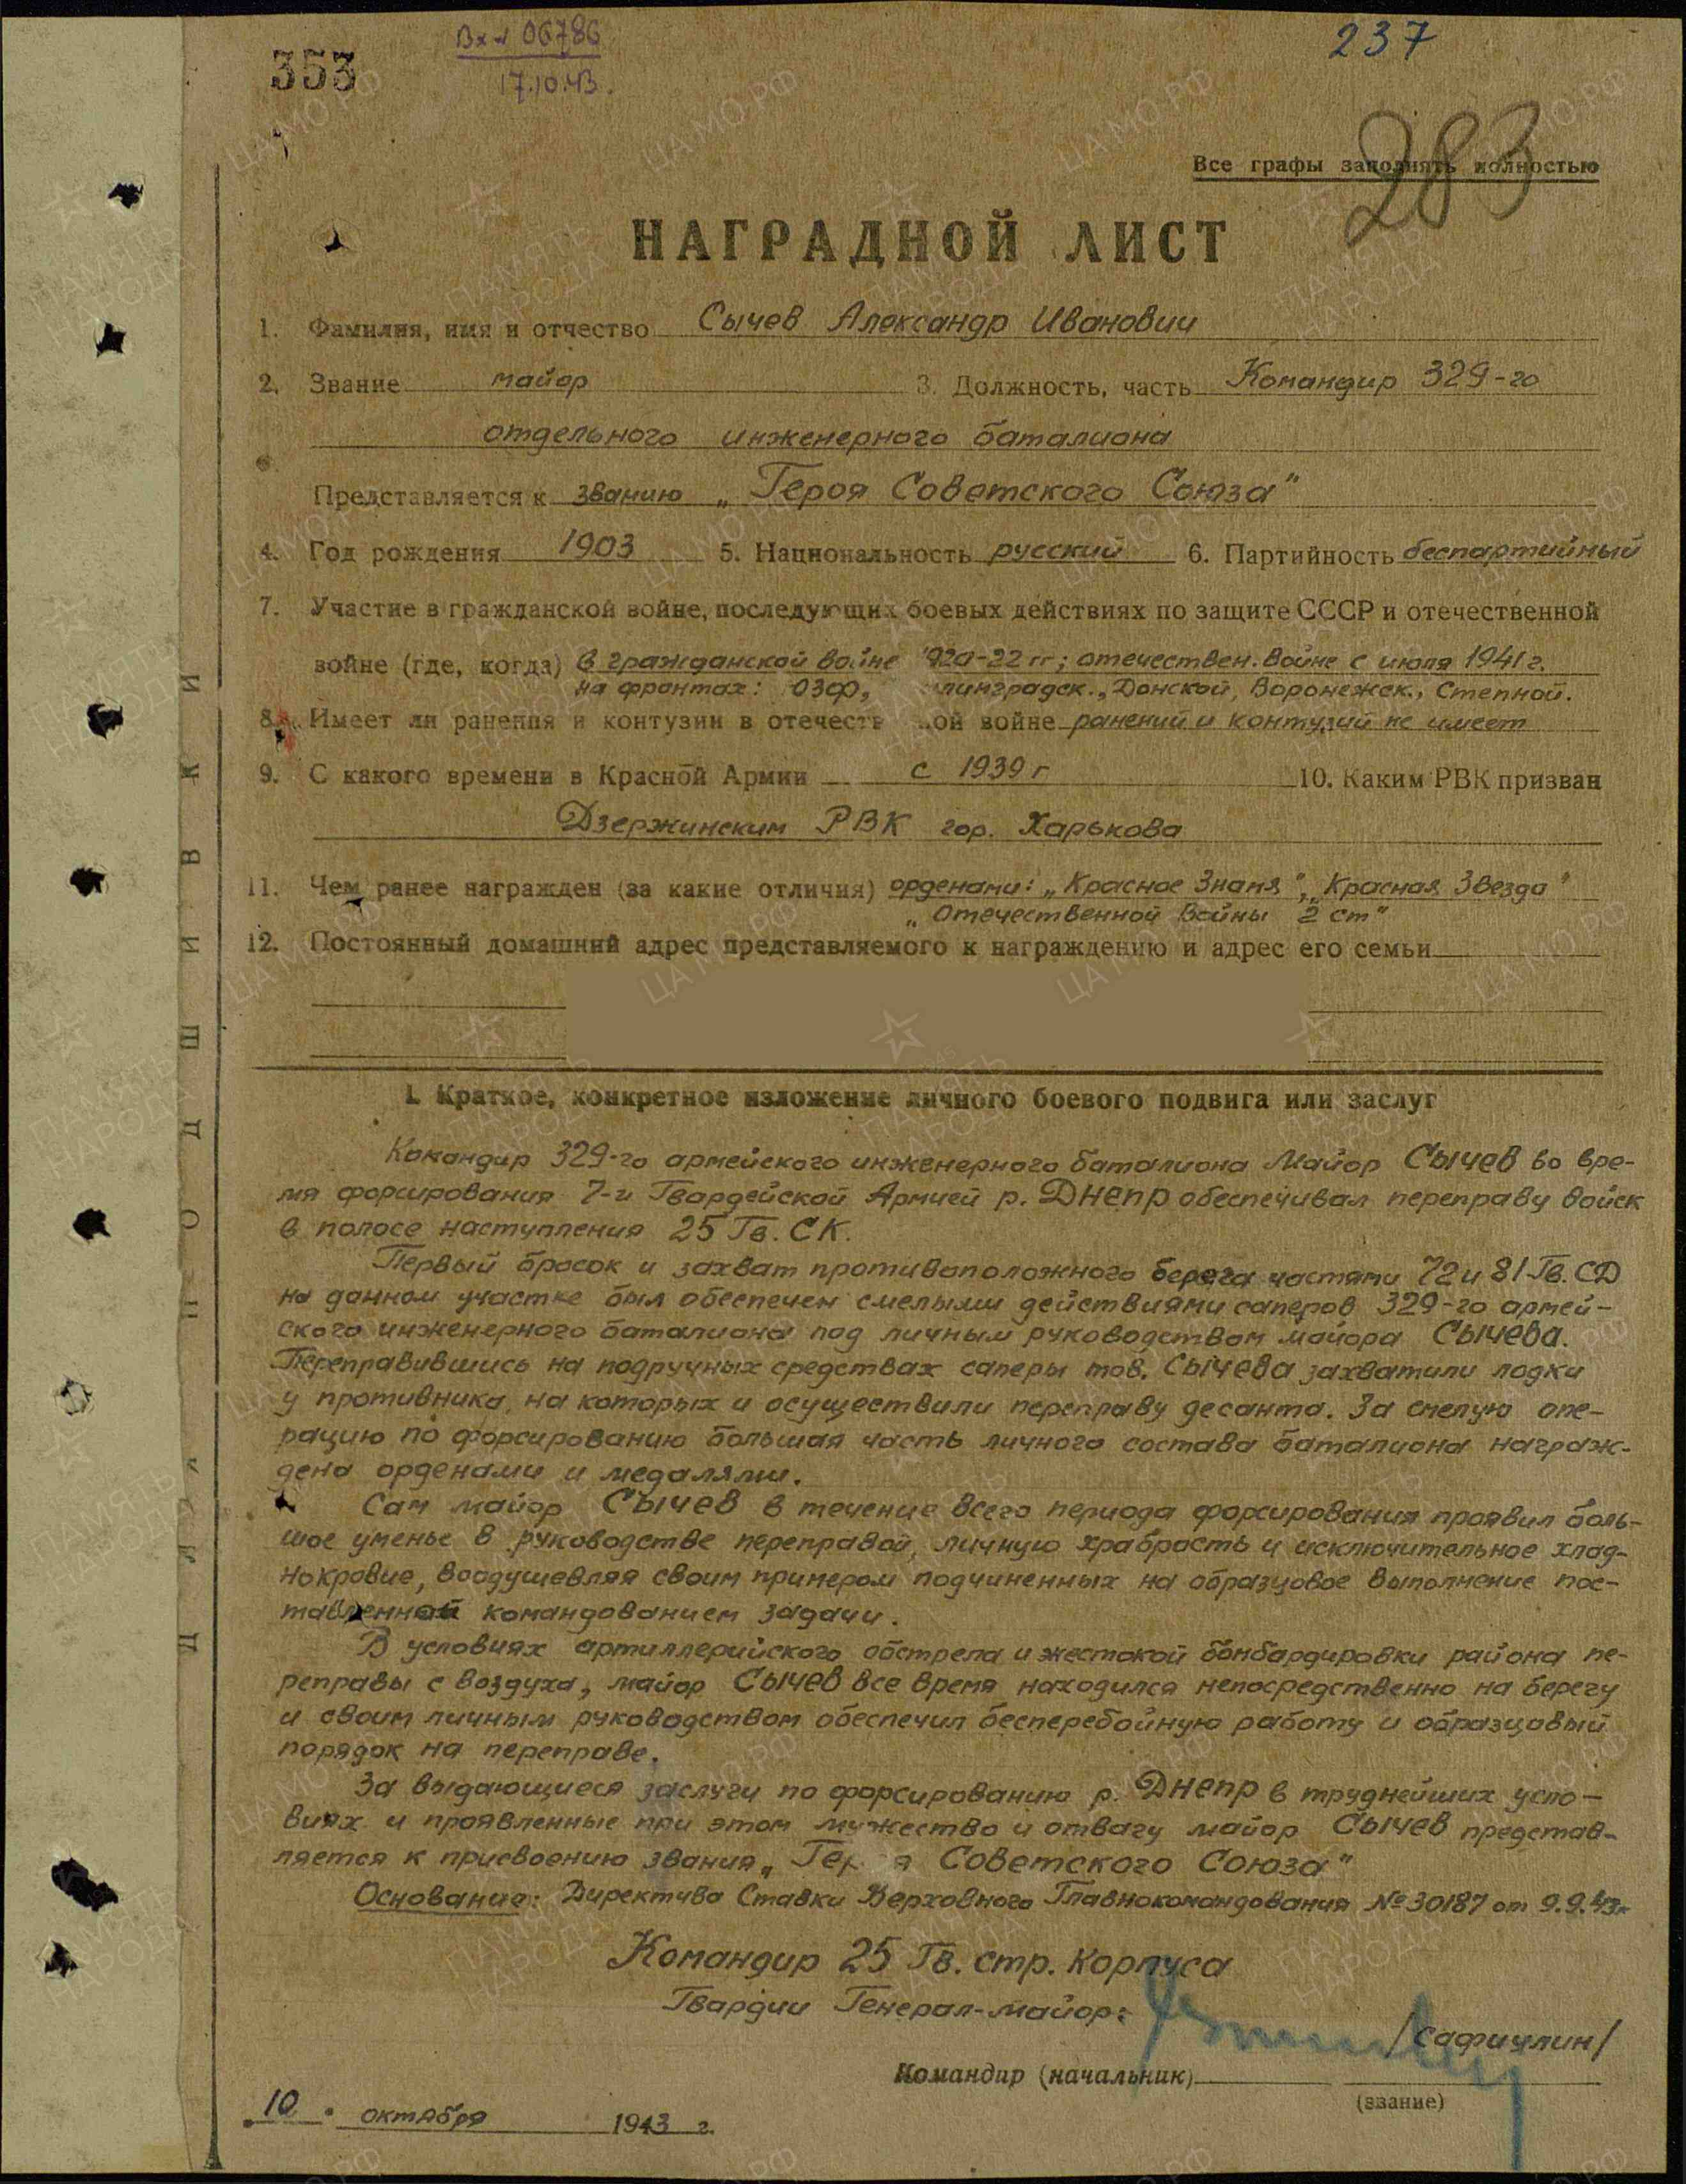 353
Вх-1 06786
17.10.43.
237
283
Все графы заполнять полностью
НАГРАДНОЙ ЛИСТ
1. Фамилия, имя и отчество Сычев Александр Иванович
2. Звание майор 3. Должность, часть Командир 329-го
отдельного инженерного баталиона
Представляется к званию „Героя Советского Союза"
4. Год рождения 1903 5. Национальность русский 6. Партийность беспартийный
7. Участие в гражданской войне, последующих боевых действиях по защите СССР и отечественной
войне (где, когда) в гражданской войне 1920-22 гг; отечествен. войне с июля 1941 г.
на фронтах: ЮЗФ, линградск., Донской, Воронежск., Степной.
8. Имеет ли ранения и контузии в отечеств ой войне ранений и контузий не имеет
9. С какого времени в Красной Армии с 1939 г 10. Каким РВК призван
Дзержинским РВК гор. Харькова
11. Чем ранее награжден (за какие отличия) орденами: „Красное Знамя", „Красная Звезда"
„Отечественной Войны 2 ст"
12. Постоянный домашний адрес представляемого к награждению и адрес его семьи
I. Краткое, конкретное изложение личного боевого подвига или заслуг
Командир 329-го армейского инженерного баталиона Майор Сычев во вре-
мя форсирования 7-й Гвардейской Армией р. Днепр обеспечивал переправу войск
в полосе наступления 25 Гв. СК.
Первый бросок и захват противоположного берега частями 72 и 81 Гв. СД
на данном участке был обеспечен смелыми действиями саперов 329-го армей-
ского инженерного баталиона под личным руководством майора Сычева.
Переправившись на подручных средствах саперы тов. Сычева захватили лодки
у противника, на которых и осуществили переправу десанта. За смелую опе-
рацию по форсированию большая часть личного состава баталиона награж-
дена орденами и медалями.
Сам майор Сычев в течение всего периода форсирования проявил боль-
шое уменье в руководстве переправой, личную храбрость и исключительное хлад-
нокровие, воодушевляя своим примером подчиненных на образцовое выполнение пос-
тавленной командованием задачи.
В условиях артиллерийского обстрела и жестокой бомбардировки района пе-
реправы с воздуха, майор Сычев все время находился непосредственно на берегу
и своим личным руководством обеспечил бесперебойную работу и образцовый
порядок на переправе.
За выдающиеся заслуги по форсированию р. Днепр в труднейших усло-
виях и проявленные при этом мужество и отвагу майор Сычев представ-
ляется к присвоению звания „Героя Советского Союза"
Основание: Директива Ставки Верховного Главнокомандования № 30187 от 9.9.43г
Командир 25 Гв. стр. корпуса
Гвардии Генерал-майор:
/Сафиулин/
Командир (начальник)
(звание)
„10" октября 1943 г.
ДЛЯ ПОДШИВКИ